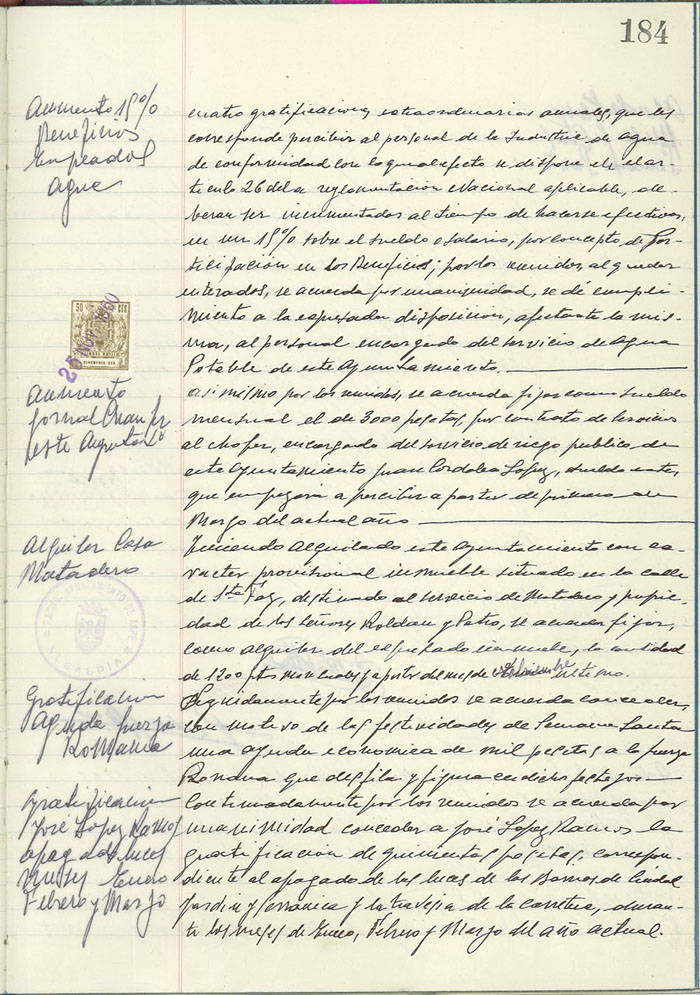 184
Aumento 15%
Beneficios
Empleados
agua
cuatro gratificaciones extraordinarias anuales, que les
corresponde percibir al personal de la Industria de agua
de conformidad con lo que al efecto se dispone en el ar-
ticulo 26 de la reglamentación Nacional aplicable, de-
berán ser incrementadas al tiempo de hacerse efectivas,
en un 15% sobre el sueldo o salario, por concepto de Par-
ticipación en los Beneficios; por los reunidos, al quedar
enterados, se acuerda por unanimidad, se dé cumpli-
miento a la expresada disposición, afectante la mis-
ma, al personal encargado del servicio de Agua
Potable de este Ayuntamiento.
50 CTS
25 NOV. 1960
Aumento
jornal Chofer
este Ayuntamto
asi mismo por los reunidos, se acuerda fijar como sueldo
mensual el de 3000 pesetas, por contrato de servicios
al chofer, encargado del servicio de riego publico de
este Ayuntamiento Juan Cordoba Lopez, sueldo este,
que empezara a percibir a partir de primero de
Marzo del actual año
Alquiler Casa
Matadero
Teniendo alquilado este Ayuntamiento con ca-
racter provisional inmueble situado en la calle
de Sta Faz, destinado al servicio de Matadero y propie-
dad de los señores Roldan y Petro, se acuerda fijar,
como alquiler del expresado inmueble, la cantidad
de 1200 pts mensuales y a partir del mes de último.
AYUNTAMIENTO DE ASPE
ALCALDIA
Gratificacion
Ayuda fuerza
Romana
Seguidamente por los reunidos se acuerda conceder,
con motivo de las festividades de Semana Santa
una ayuda economica de mil pesetas a la fuerza
Romana que desfila y figura en dichos festejos
Gratificacion
José Lopez Ramos
apagado luces
meses Enero
Febrero y Marzo
Continuadamente por los reunidos se acuerda por
unanimidad conceder a José Lopez Ramos la
gratificacion de quinientas pesetas, correspon-
diente al apagado de las luces de los Barrios de Ciudad
Jardin y Serranica y la travesia de la carretera, duran-
te los meses de Enero, Febrero y Marzo del año actual.